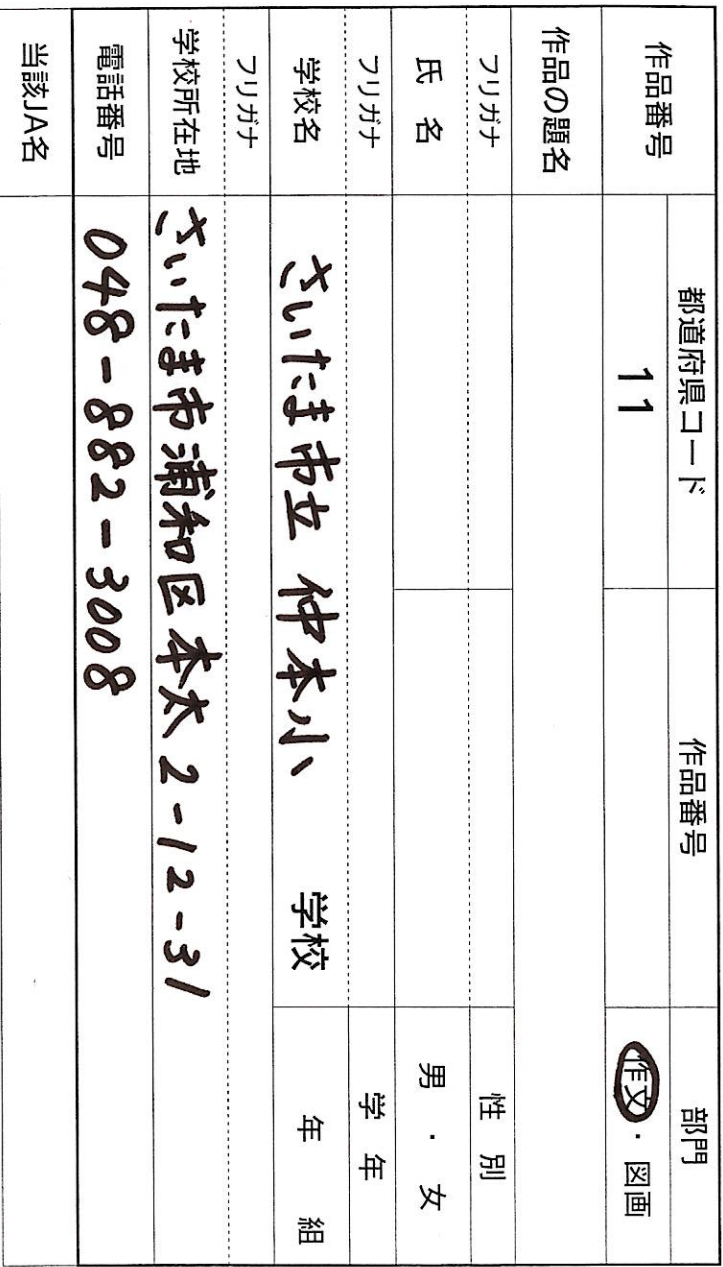 作品番号 都道府県コード 作品番号 部門
11 作文・図画
作品の題名
フリガナ 性別
氏名 男・女
フリガナ 学年
学校名 さいたま市立 仲本小 学校 年 組
フリガナ
学校所在地 さいたま市浦和区本太2-12-31
電話番号 048-882-3008
当該JA名